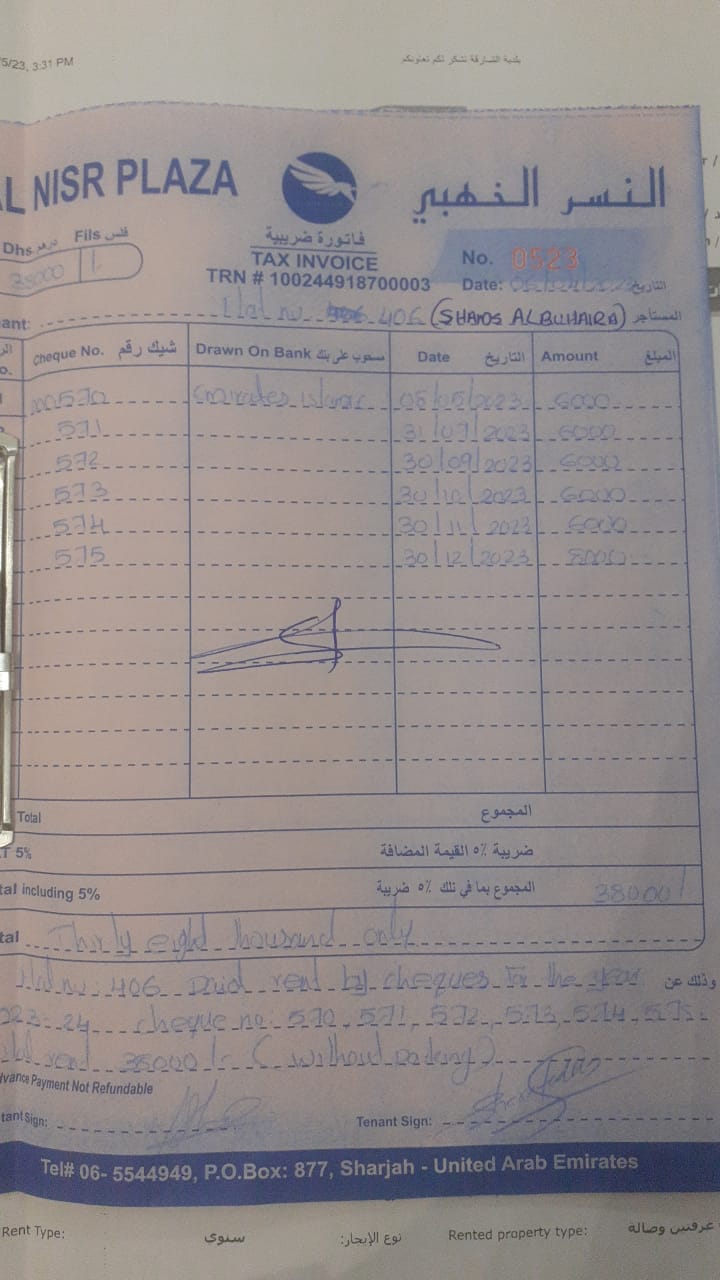 5/23, 3:31 PM
بلدية الشارقة تشكر لكم تعاونكم
AL NISR PLAZA
النسر الذهبي
فاتورة ضريبية
TAX INVOICE
TRN # 100244918700003
Dhs درهم Fils فلس
38000 /-
No. 0523
Date: التاريخ
ant: 406 (SHAMS ALBUHAIRA) المستأجر
Cheque No. شيك رقم Drawn On Bank مسحوب على بنك Date التاريخ Amount المبلغ
000570 Emirates islamic 05/05/2023 6000
571 31/07/2023 6000
572 30/09/2023 6000
573 30/10/2023 6000
574 30/11/2023 6000
575 30/12/2023 8000
Total المجموع
T 5% ضريبة ٥٪ القيمة المضافة
tal including 5% المجموع بما في ذلك ٥٪ ضريبة 38000/
tal Thirty eight thousand only
406 Paid rent by cheques for the year وذلك عن
023-24 cheque no: 570, 571, 572, 573, 574, 575
rent 38000/- (without parking)
dvance Payment Not Refundable
tant Sign: Tenant Sign:
Tel# 06- 5544949, P.O.Box: 877, Sharjah - United Arab Emirates
Rent Type: سنوي نوع الإيجار: Rented property type: غرفتين وصالة